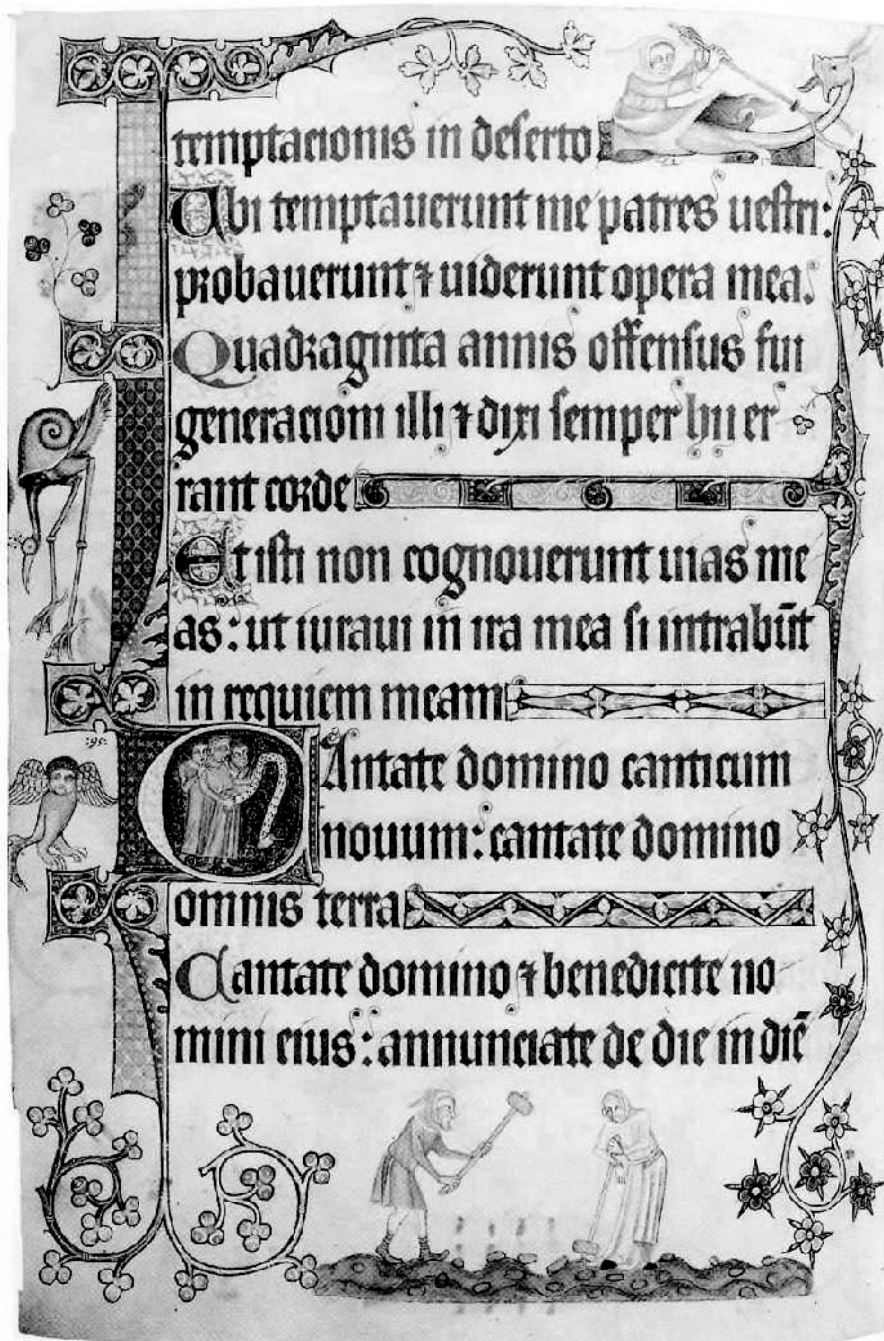 temptacionis in deserto
Ubi temptauerunt me patres uestri:
probauerunt ⁊ uiderunt opera mea.
Quadraginta annis offensus fui
generacioni illi ⁊ dixi semper hii er
rant corde
Et isti non cognouerunt uias me
as: ut iuraui in ira mea si intrabūt
in requiem meam
.95.
CAntate domino canticum
nouum: cantate domino
omnis terra
Cantate domino ⁊ benedicite no
mini eius: annunciate de die in diē